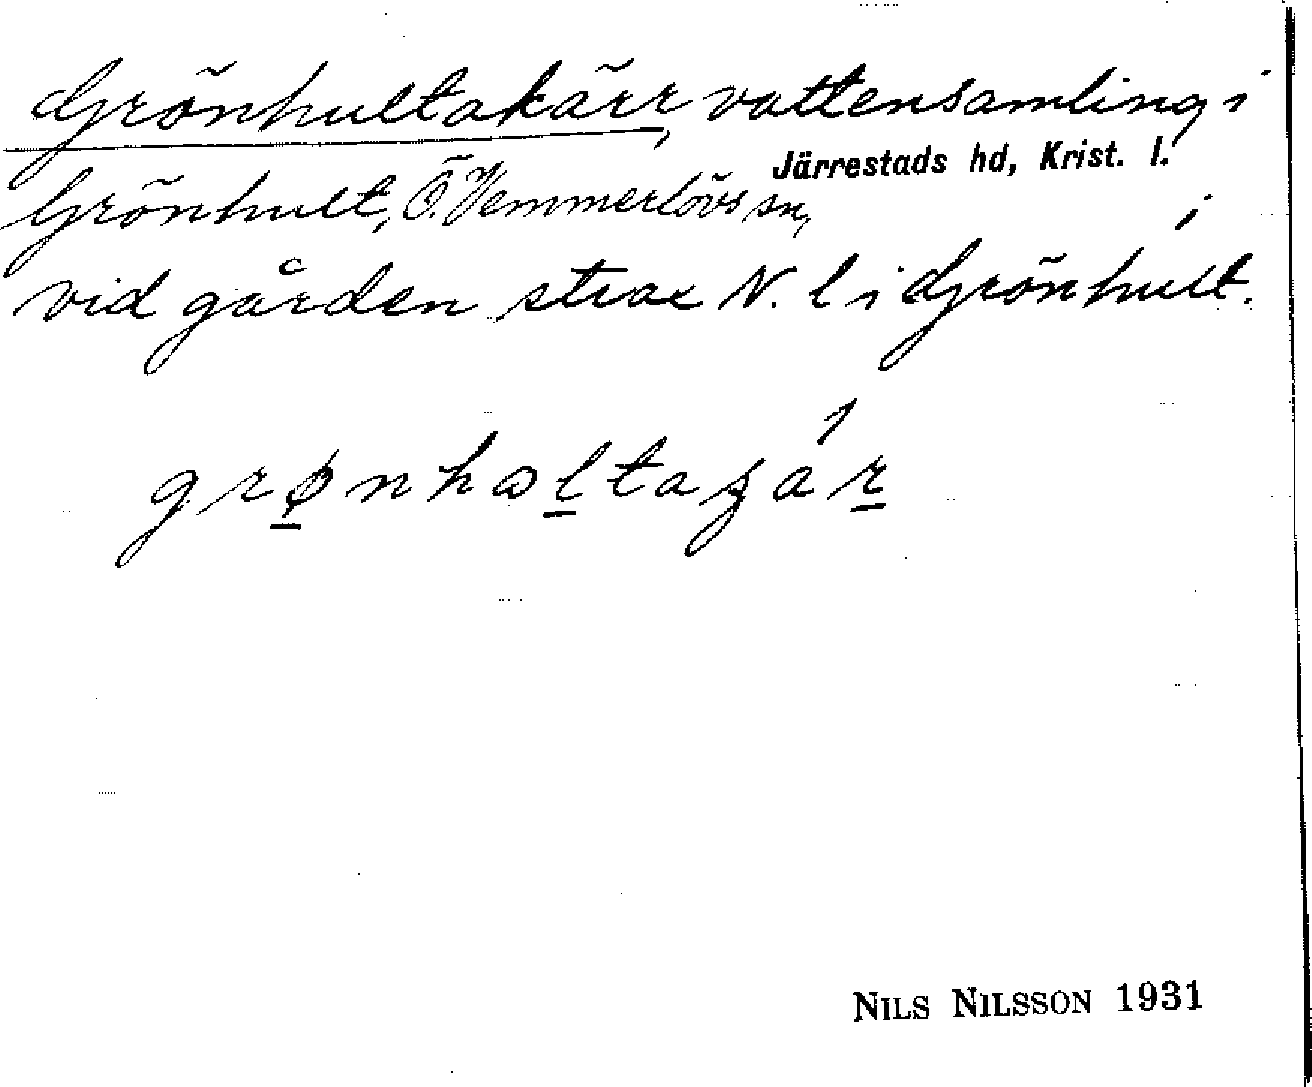 Grönhultakärr, vattensamling i
Järrestads hd, Krist. l.
Grönhult, Ö. Vemmerlövs sn, i
vid gården strax N. l i Grönhult.
NILS NILSSON 1931